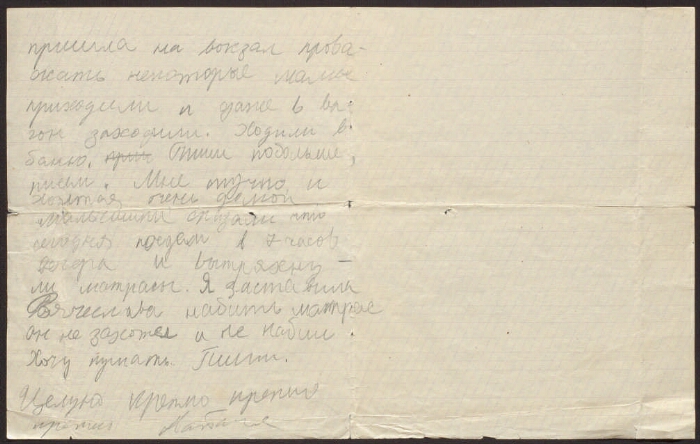 пришла на вокзал прова-
жать некоторые мамы
приходили и даже в ва-
гон заходили. Ходили в
баню. Пиши побольше,
писем. Мне скучно и
хочется очень домой
мальчишки сказали что
сегодня поедам в 7 часов
вечера и вытряхну-
ли матрасы. Я заставила
Вячеслава набить матрас
он не захотел и не набил.
Хочу кушать. Пиши.
Целую крепко крепко
крепко Наташа